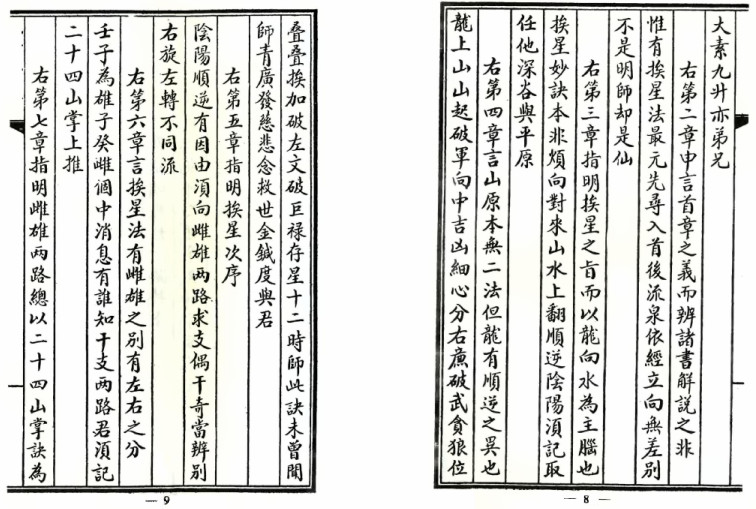 大素九升亦弟兄
右第二章申言首章之義而辨諸書解說之非
惟有挨星法最元先尋入首後流泉依經立向無差別
不是明師却是仙
右第三章指明挨星之旨而以龍向水為主腦也
挨星妙訣本非煩向對來山水上翻順逆陰陽須記取
任他深谷與平原
右第四章言山原本無二法但龍有順逆之異也
龍上山山起破軍向中吉凶細心分右廉破武貪狼位
— 8 —
疊疊挨加破左文破巨祿存星十二時師此訣未曾聞
師青廣發慈悲念救世金鍼度與君
右第五章指明挨星次序
陰陽順逆有因由須向雌雄兩路求支偶干奇當辨別
右旋左轉不同流
右第六章言挨星法有雌雄之別有左右之分
壬子為雄子癸雌個中消息有誰知干支兩路君須記
二十四山掌上推
右第七章指明雌雄兩路總以二十四山掌訣為
— 9